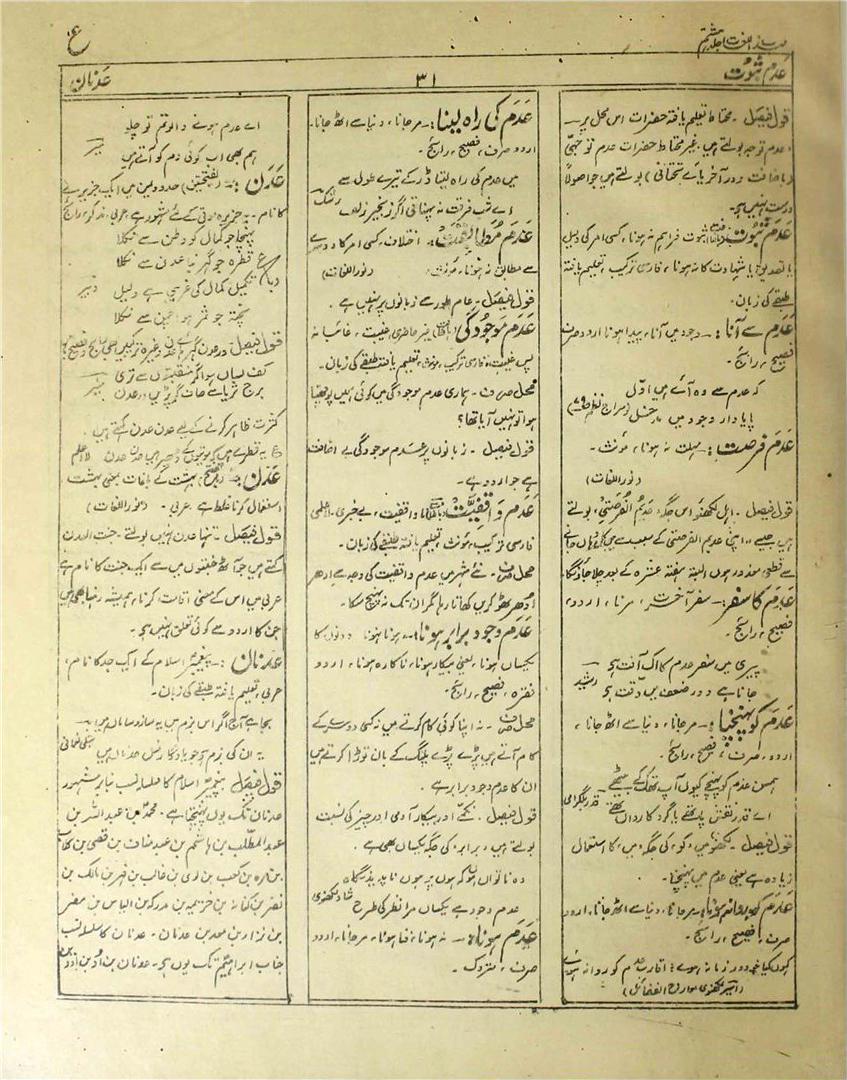 مہذب اللغات جلد ہشتم
ع
عدم ثبوت
۳۱
عدنان
قول فیصل ۔ محتاط تعلیم یافتہ حضرات اس محل پر
عدم توجہ بولتے ہیں۔ غیر محتاط حضرات عدم توجہی
(باضافت و در آخر یائے تحتانی) بولتے ہیں جو اصولاً
درست نہیں ہے۔
عدم ثبوت:۔ ثبوت فراہم نہ ہونا، کسی امر کی دلیل
یا تصدیق یا شہادت کا نہ ہونا، فارسی ترکیب، تعلیم یافتہ
طبقے کی زبان۔
عدم سے آنا:۔ وجود میں آنا، پیدا ہونا اردو صرف
فصیح، رائج۔
کہ عدم سے وہ آئے ہیں اوّل
پایا دار وجود میں
عدم فرصت:۔ مہلت نہ ہونا، مؤنث۔
(نور اللغات)
قول فیصل ۔ اہل لکھنؤ اس جگہ، عدیم الفرصتی، بولتے
ہیں جیسے، اپنی عدیم الفرصتی کے سبب سے میں کہیں جانے
سے قطعی معذور ہوں البتہ ہفتہ عشرہ کے بعد چلا جاؤنگا۔
عدم کا سفر:۔ سفر آخرت، مرنا، اردو،
فصیح، رائج۔
پیری میں سفر عدم کا اک آفت ہے
جانا ہے دور ضعف میں دقت ہے رشید
عدم کو پہنچنا:۔ مرجانا، دنیا سے اٹھ جانا،
اردو، صرف، فصیح، رائج۔
ہمسن عدم کو پہنچے کیوں آپ تھک کے بیٹھے
اے قدر نقش پا تھے یا گرد کارواں تھے قدر بلگرامی
قول فیصل ۔ لکھنؤ میں، کو، کی جگہ، میں، کا استعمال
زیادہ ہے یعنی عدم میں پہنچنا۔
عدم کو روانہ ہونا:۔ مرجانا، دنیا سے اٹھ جانا، اردو
صرف، فصیح، رائج۔
کیوں کیا غم دور زمانہ ہوئے اقارب عدم کو روانہ ہوئے
عدم کی راہ لینا:۔ مرجانا، دنیا سے اٹھ جانا۔
اردو صرف، فصیح، رائج۔
میں عدم کی راہ لیتا ڈر کے تیرے طول سے
اے شب فرقت نہ پہناتی اگر زنجیر زلف رشک
عدم مطابقت:۔ اختلاف، کسی امر کا دوسرے
سے مطابق نہ ہونا، مؤنث۔ (نور اللغات)
قول فیصل ۔ عام طور سے زبانوں پر نہیں ہے۔
عدم موجودگی:۔ غیر حاضری، غیبت، غائب نہ
پس غیبت، فارسی ترکیب، مؤنث، تعلیم یافتہ طبقے کی زبان۔
محل صرف ۔ ہماری عدم موجودگی میں کوئی ہمیں پوچھتا
ہوا تو نہیں آیا تھا؟
قول فیصل ۔ زبانوں پر عدم موجودگی بے اضافت
ہے جو اردو ہے۔
عدم واقفیت:۔ نا واقفیت، بے خبری، لاعلمی
فارسی ترکیب، مؤنث، تعلیم یافتہ طبقے کی زبان۔
محل صرف ۔ نئے شہر میں عدم واقفیت کی وجہ سے ادھر
اُدھر ٹھوکریں کھاتا رہا مگر ان تک نہ پہنچ سکا۔
عدم وجود برابر ہونا:۔ ہونا نہ ہونا، دونوں کا
یکساں ہونا، یعنی بیکار ہونا، ناکارہ ہونا، اردو
فقرہ، فصیح، رائج۔
محل صرف ۔ نہ اپنا کوئی کام کرتے ہیں نہ کسی دوسرے کے
کام آتے ہیں پڑے پڑے پلنگ کے بان توڑا کرتے ہیں
ان کا عدم وجود برابر ہے۔
قول فیصل ۔ نکمے اور بیکار آدمی اور چیز کی نسبت
بولتے ہیں، برابر، کی جگہ یکساں بھی ہے۔
وہ ناتواں ہوں کہ ہوں پر ہوں ناپدید نگاہ
عدم وجود ہے یکساں مرا نظر کی طرح شاد لکھنوی
عدم ہونا:۔ نہ ہونا، فنا ہونا، مرجانا، اردو
صرف، متروک۔
اے عدم ہونے والو تم تو چلو
ہم بھی اب کوئی دم کو آتے ہیں میر
عدن:۔ (بفتحین) حدود یمن میں ایک جزیرے
کا نام۔ یہ جزیرہ موتی کے لئے مشہور ہے، عربی، مذکر، رائج
پہنچا جو کمال کو وطن سے نکلا
قطرہ جو گہر بنا عدن سے نکلا
تکمیل کمال کی غریبی ہے دلیل دبیر
پختہ جو ثمر ہوا چمن سے نکلا
قول فیصل ۔ در عدن، گہر ہائے عدن وغیرہ ترکیبیں بھی رائج و فصیح ہیں
کثرت ظاہر کرنے کے لیے عدن عدن کہتے ہیں۔
عدن:۔ بہشت کے باغات بمعنی بہشت
استعمال کرنا غلط ہے، عربی۔ (نور اللغات)
قول فیصل ۔ تنہا عدن نہیں بولتے۔ جنت العدن
کہتے ہیں جو آٹھ جنتوں میں سے ایک جنت کا نام ہے
عربی میں اس کے معنی اقامت کرنا، ہمیشہ رہنا بھی ہیں
جن کا اردو سے کوئی تعلق نہیں ہے۔
عدنان:۔ پیغمبر اسلام کے ایک جد کا نام،
عربی، تعلیم یافتہ طبقے کی زبان۔
بجا ہے آج اگر اس بزم میں یہ ساز و ساماں ہیں
یہ ان کی بزم ہے جو یادگار نسل عدناں ہیں شبلی نعمانی
قول فیصل ۔ پیغمبر اسلام کا سلسلہ نسب بنا بر مشہور
عدنان تک یوں پہنچتا ہے۔ محمدؐ بن عبد اللہ بن
عبد المطلب بن ہاشم بن عبد مناف بن قصی بن کلاب
بن مرہ بن کعب بن لوی بن غالب بن فہر بن مالک بن
نضر بن کنانہ بن خزیمہ بن مدرکہ بن الیاس بن مضر
بن نزار بن معد بن عدنان۔ عدنان کا سلسلہ نسب
جناب ابراہیمؑ تک یوں ہے۔ عدنان بن اد بن ادد بن